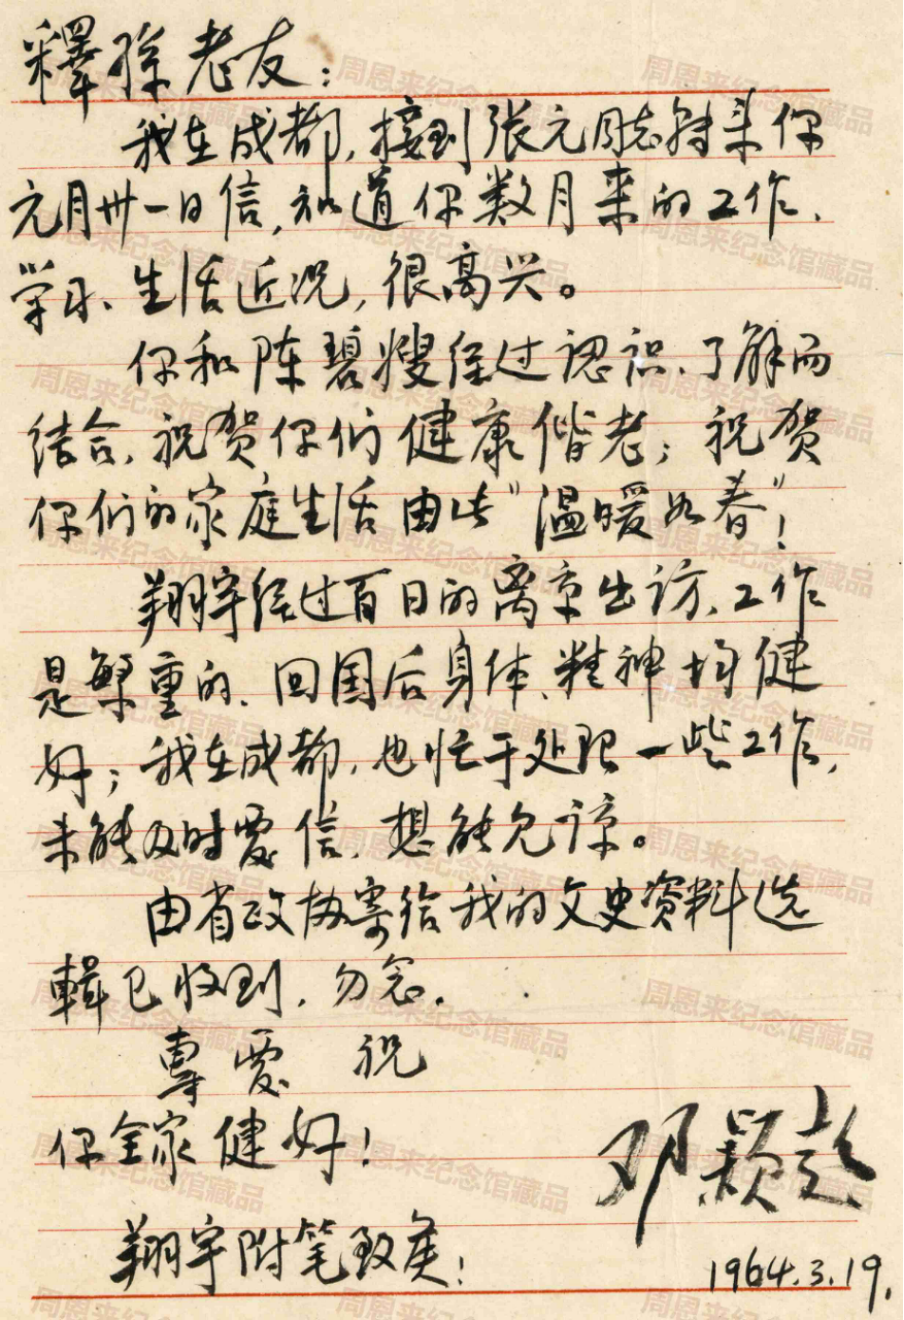 釋孫老友：
我在成都，接到张元同志转来你
元月卅一日信，知道你数月来的工作、
学习、生活近况，很高兴。
你和陈碧嫂经过認识、了解而
结合，祝贺你们健康偕老；祝贺
你们的家庭生活由此“温暖如春”！
翔宇经过百日的离京出访，工作
是繁重的，回国后身体、精神均健
好；我在成都，也忙于处理一些工作，
未能及时覆信，想能允谅。
由省政协寄给我的文史资料选
輯已收到，勿念。
專覆 祝
你全家健好！
邓颖超
翔宇附笔致侯！
1964.3.19.
周恩来纪念馆藏品